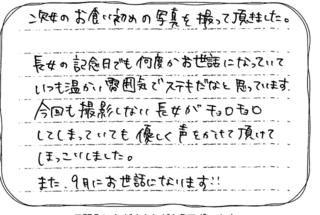 次女のお食い初めの写真を撮って頂きました。
長女の記念日でも何度かお世話になっていて
いつも温かい雰囲気でステキだなと思っています。
今回も撮影しない長女がチョロチョロ
してしまっていても優しく声をかけて頂けて
ほっこりしました。
また、9月にお世話になります!!